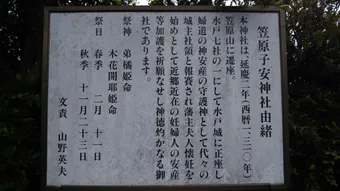 笠原子安神社由緒
本神社は延慶二年(西暦一三一〇年)
笠原山に遷座。
水戸七社の一にして水戸城に正座し
婦道の神安産の守護神として代々の
城主社領と報賽され藩主夫人懐妊を
始めとして近郷近在の妊婦人の安産
等加護を祈願なせし神徳灼かなる御
社であります。
祭神 弟橘姫命
木花開耶姫命
祭日 春季 二月十一日
秋季 十一月二十三日
文責 山野英夫